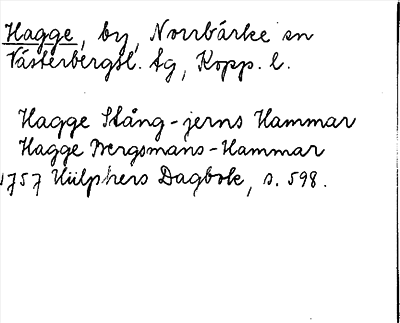 Hagge, by, Norrbärke sn
Västerbergsl. tg, Kopp. l.
Hagge Stång-jerns Hammar
Hagge Bergsmans-Hammar
1757 Hülphers Dagbok, s. 598.